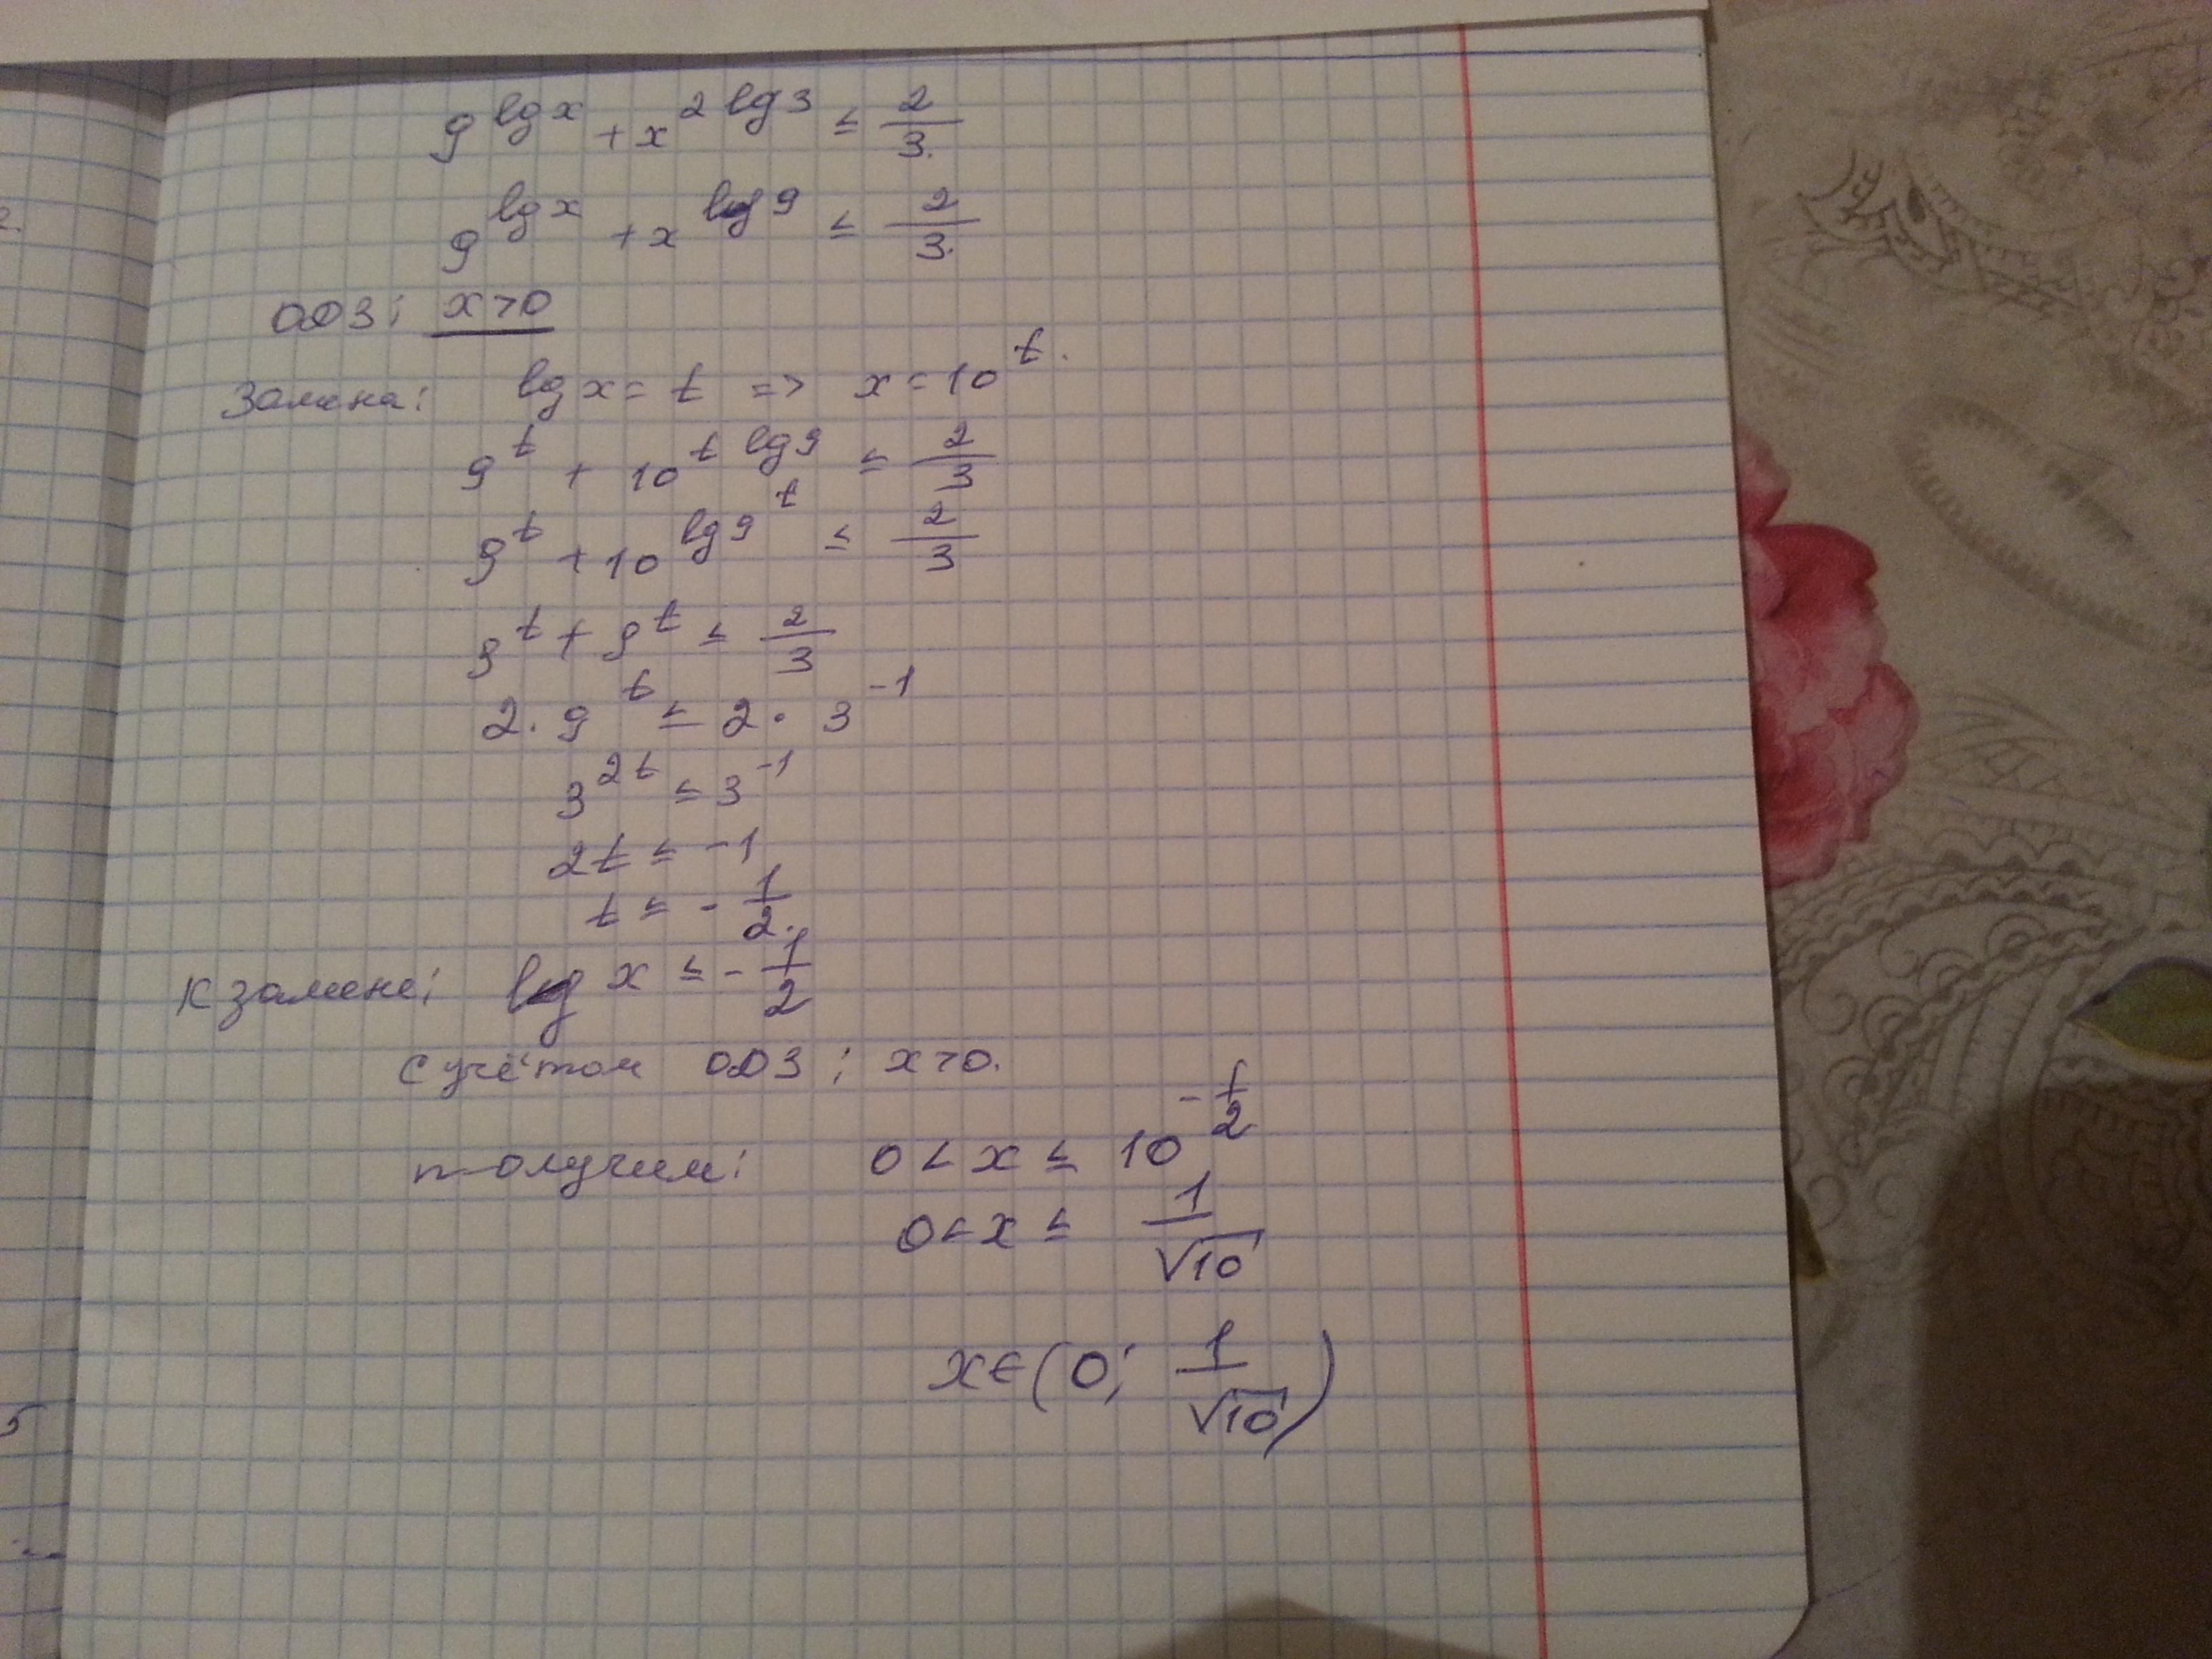 9^{lg x} + x^{2 lg 3} ≤ 2/3.
9^{lg x} + x^{lg 9} ≤ 2/3.
ОДЗ: x > 0
Замена: lg x = t => x = 10^t.
9^t + 10^{t lg 9} ≤ 2/3
9^t + 10^{lg 9^t} ≤ 2/3
9^t + 9^t ≤ 2/3
2 · 9^t ≤ 2 · 3^{-1}
3^{2t} ≤ 3^{-1}
2t ≤ -1
t ≤ -1/2.
К замене: lg x ≤ -1/2
С учётом ОДЗ: x > 0.
получим: 0 < x ≤ 10^{-1/2}
0 < x ≤ 1/√10
x ∈ (0; 1/√10)